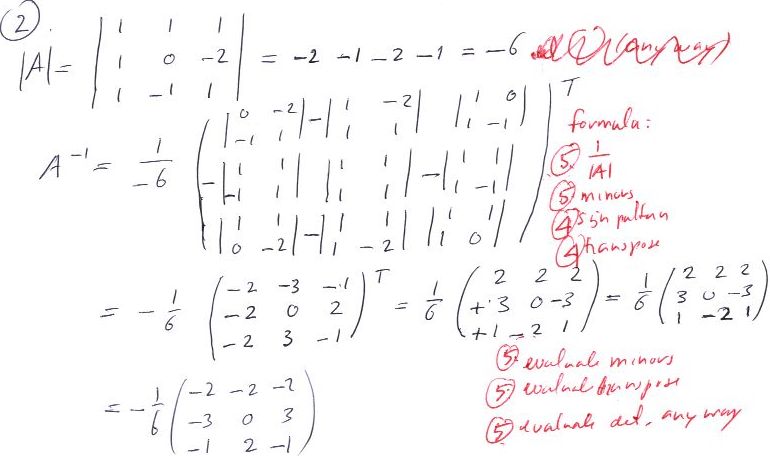 ②.
|A| = | 1 1 1 |
| 1 0 -2 | = -2 -1 -2 -1 = -6 (any way)
| 1 -1 1 |
A⁻¹ = 1/-6 ( | 0 -2 ; -1 1 | -| 1 -2 ; 1 1 | | 1 0 ; 1 -1 |
-| 1 1 ; -1 1 | | 1 1 ; 1 1 | -| 1 1 ; 1 -1 |
| 1 1 ; 0 -2 | -| 1 1 ; 1 -2 | | 1 1 ; 1 0 | )ᵀ
formula:
⑤ 1/|A|
⑤ minors
④ sign pattern
④ transpose
= -1/6 ( -2 -3 -1 ; -2 0 2 ; -2 3 -1 )ᵀ = 1/6 ( 2 2 2 ; +3 0 -3 ; +1 -2 1 ) = 1/6 ( 2 2 2 ; 3 0 -3 ; 1 -2 1 )
= -1/6 ( -2 -2 -2 ; -3 0 3 ; -1 2 -1 )
⑤ evaluate minors
⑤ evaluate transpose
⑤ evaluate det, any way